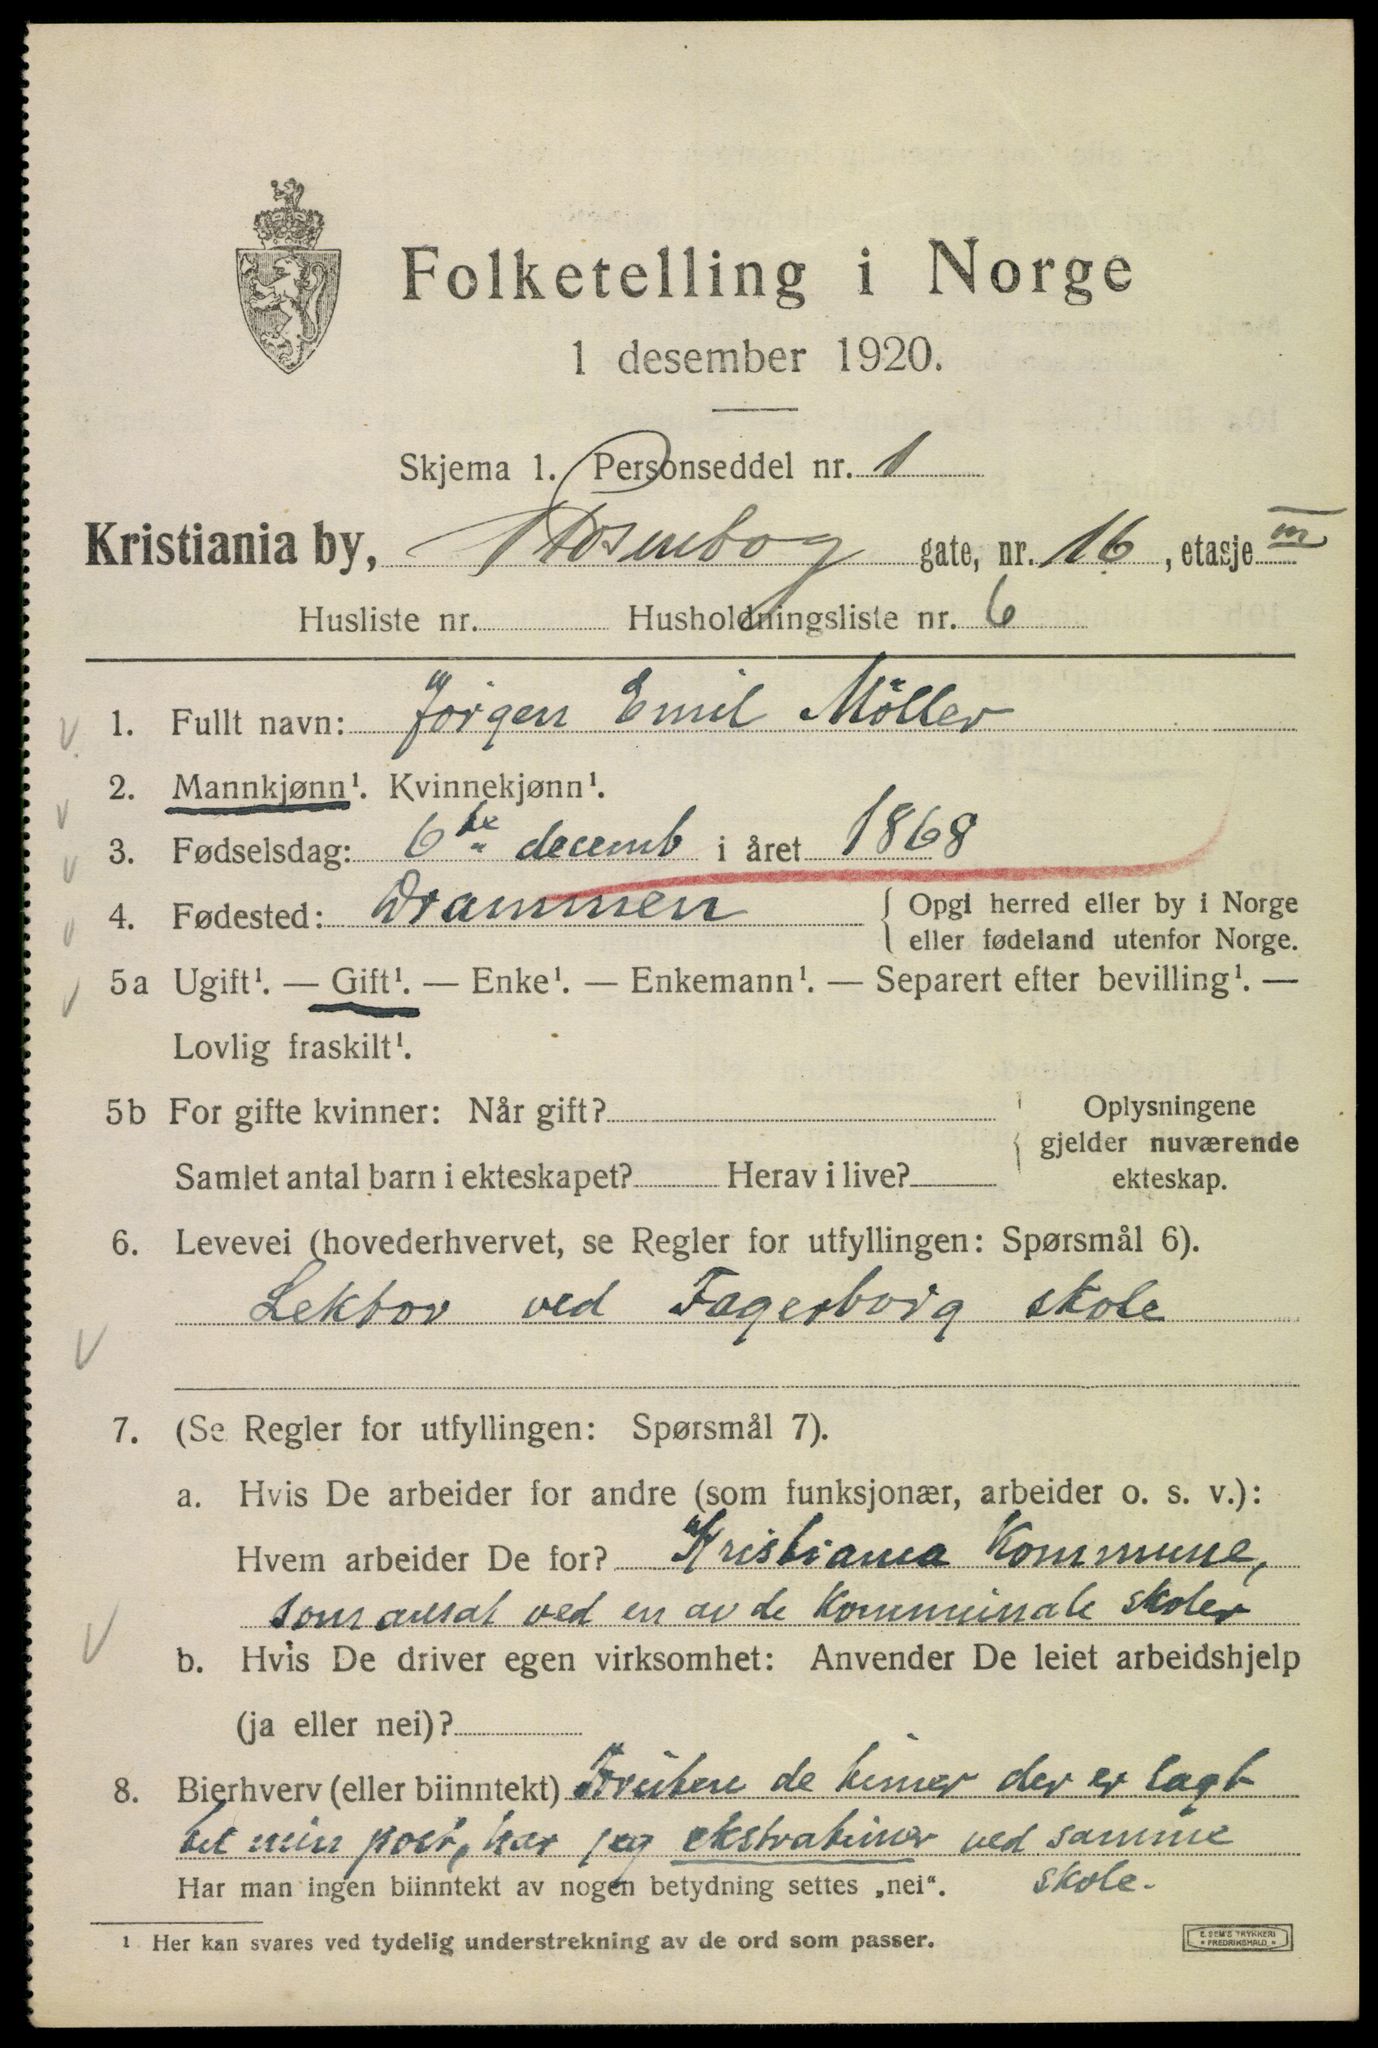 Folketelling i Norge
1 desember 1920.
Skjema 1. Personseddel nr. 1
Kristiania by, Rosenborg gate, nr. 16, etasje III
Husliste nr. Husholdningsliste nr. 6
1. Fullt navn: Jörgen Emil Möller
2. Mannkjønn¹. Kvinnekjønn¹.
3. Fødselsdag: 6te decemb i året 1868
4. Fødested: Drammen { Opgi herred eller by i Norge
eller fødeland utenfor Norge.
5a Ugift¹. — Gift¹. — Enke¹. — Enkemann¹. — Separert efter bevilling¹. —
Lovlig fraskilt¹.
5b For gifte kvinner: Når gift? Oplysningene
gjelder nuværende
Samlet antal barn i ekteskapet? Herav i live? ekteskap.
6. Levevei (hovederhvervet, se Regler for utfyllingen: Spørsmål 6).
Lektor ved Fagerborg skole
7. (Se Regler for utfyllingen: Spørsmål 7).
a. Hvis De arbeider for andre (som funksjonær, arbeider o. s. v.):
Hvem arbeider De for? Kristiania Kommune,
som ansat ved en av de kommunale skoler
b. Hvis De driver egen virksomhet: Anvender De leiet arbeidshjelp
(ja eller nei)?
8. Bierhverv (eller biinntekt) Foruten de timer der er lagt
til min post, har jeg ekstratimer ved samme
Har man ingen biinntekt av nogen betydning settes „nei“. skole.
¹ Her kan svares ved tydelig understrekning av de ord som passer.
E. SEM'S TRYKKERI
FREDRIKSHALD